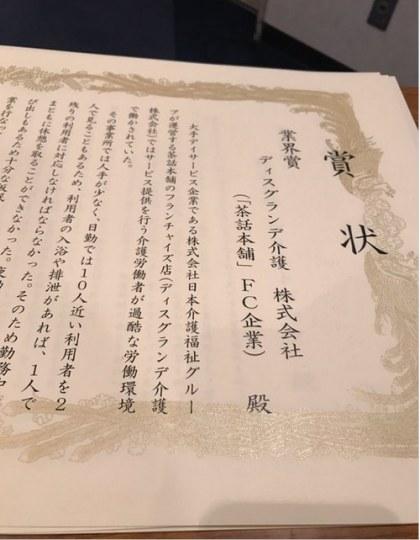 賞状
業界賞
ディスグランデ介護 株式会社
（「茶話本舗」FC企業） 殿
大手デイサービス企業である株式会社日本介護福祉グルー
プが運営する茶話本舗のフランチャイズ店（ディスグランデ介護
株式会社）ではサービス提供を行う介護労働者が過酷な労働環境
で働かされていた。
その事業所では人手が少なく、日勤では10人近い利用者を2
人で見ることもあるため、利用者の入浴や排泄があれば、1人で
残りの利用者に対応しなければならなかった。そのため勤務中
まともに休憩を取ることができなかった。
び出しもあるため十分な仮眠
業を行なっ